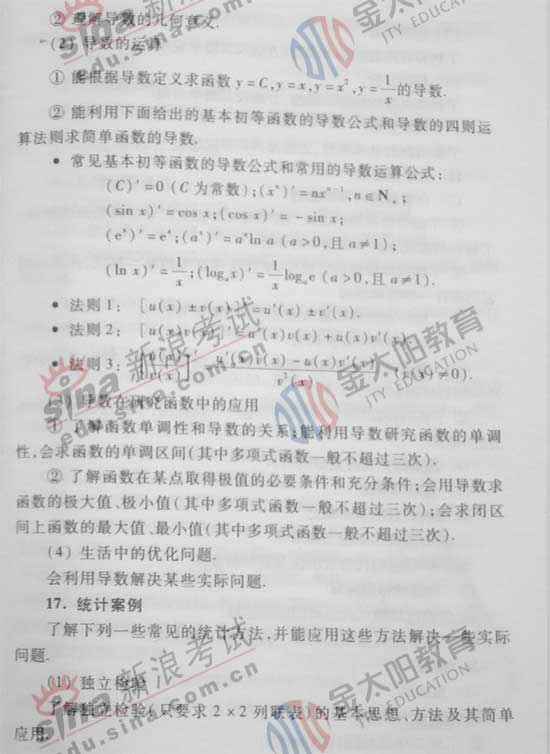 ② 理解导数的几何意义.
(2) 导数的运算
① 能根据导数定义求函数 y=C,y=x,y=x²,y=1/x 的导数.
② 能利用下面给出的基本初等函数的导数公式和导数的四则运
算法则求简单函数的导数.
• 常见基本初等函数的导数公式和常用的导数运算公式:
(C)′=0 (C 为常数);(xⁿ)′=nxⁿ⁻¹,n∈N₊;
(sin x)′=cos x;(cos x)′=-sin x;
(eˣ)′=eˣ;(aˣ)′=aˣln a (a>0,且 a≠1);
(ln x)′=1/x;(logₐx)′=1/x logₐe (a>0,且 a≠1).
• 法则 1: [u(x)±v(x)]′=u′(x)±v′(x).
• 法则 2: [u(x)v(x)]′=u′(x)v(x)+u(x)v′(x).
• 法则 3: [u(x)/v(x)]′=(u′(x)v(x)-u(x)v′(x))/v²(x) (v(x)≠0).
(3) 导数在研究函数中的应用
① 了解函数单调性和导数的关系;能利用导数研究函数的单调
性,会求函数的单调区间(其中多项式函数一般不超过三次).
② 了解函数在某点取得极值的必要条件和充分条件;会用导数求
函数的极大值、极小值(其中多项式函数一般不超过三次);会求闭区
间上函数的最大值、最小值(其中多项式函数一般不超过三次).
(4) 生活中的优化问题.
会利用导数解决某些实际问题.
17. 统计案例
了解下列一些常见的统计方法,并能应用这些方法解决一些实际
问题.
(1) 独立检验
了解独立检验(只要求 2×2 列联表)的基本思想、方法及其简单
应用.
sina 新浪考试
edu.sina.com.cn
金太阳教育
JTY EDUCATION
sina 新浪考试
edu.sina.com.cn
金太阳教育
JTY EDUCATION
sina 新浪考试
edu.sina.com.cn
金太阳教育
JTY EDUCATION